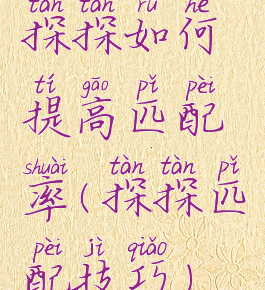 tàn tàn rú hé
探探如何
tí gāo pǐ pèi
提高匹配
shuài tàn tàn pǐ
率(探探匹
pèi jì qiǎo
配技巧)